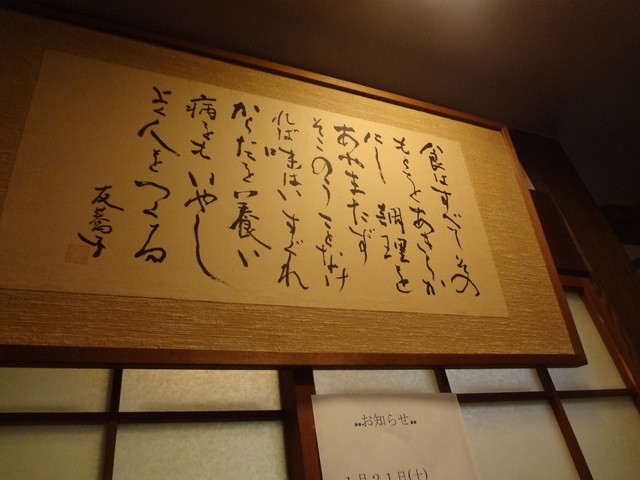 食はすべてその
もとをあきらか
にし 調理を
あやまたず
そこのうことなけ
れば味はいすぐれ
からだを養い
病をもいやし
よく人をつくる
友蕎子
お知らせ
1月21日(土)